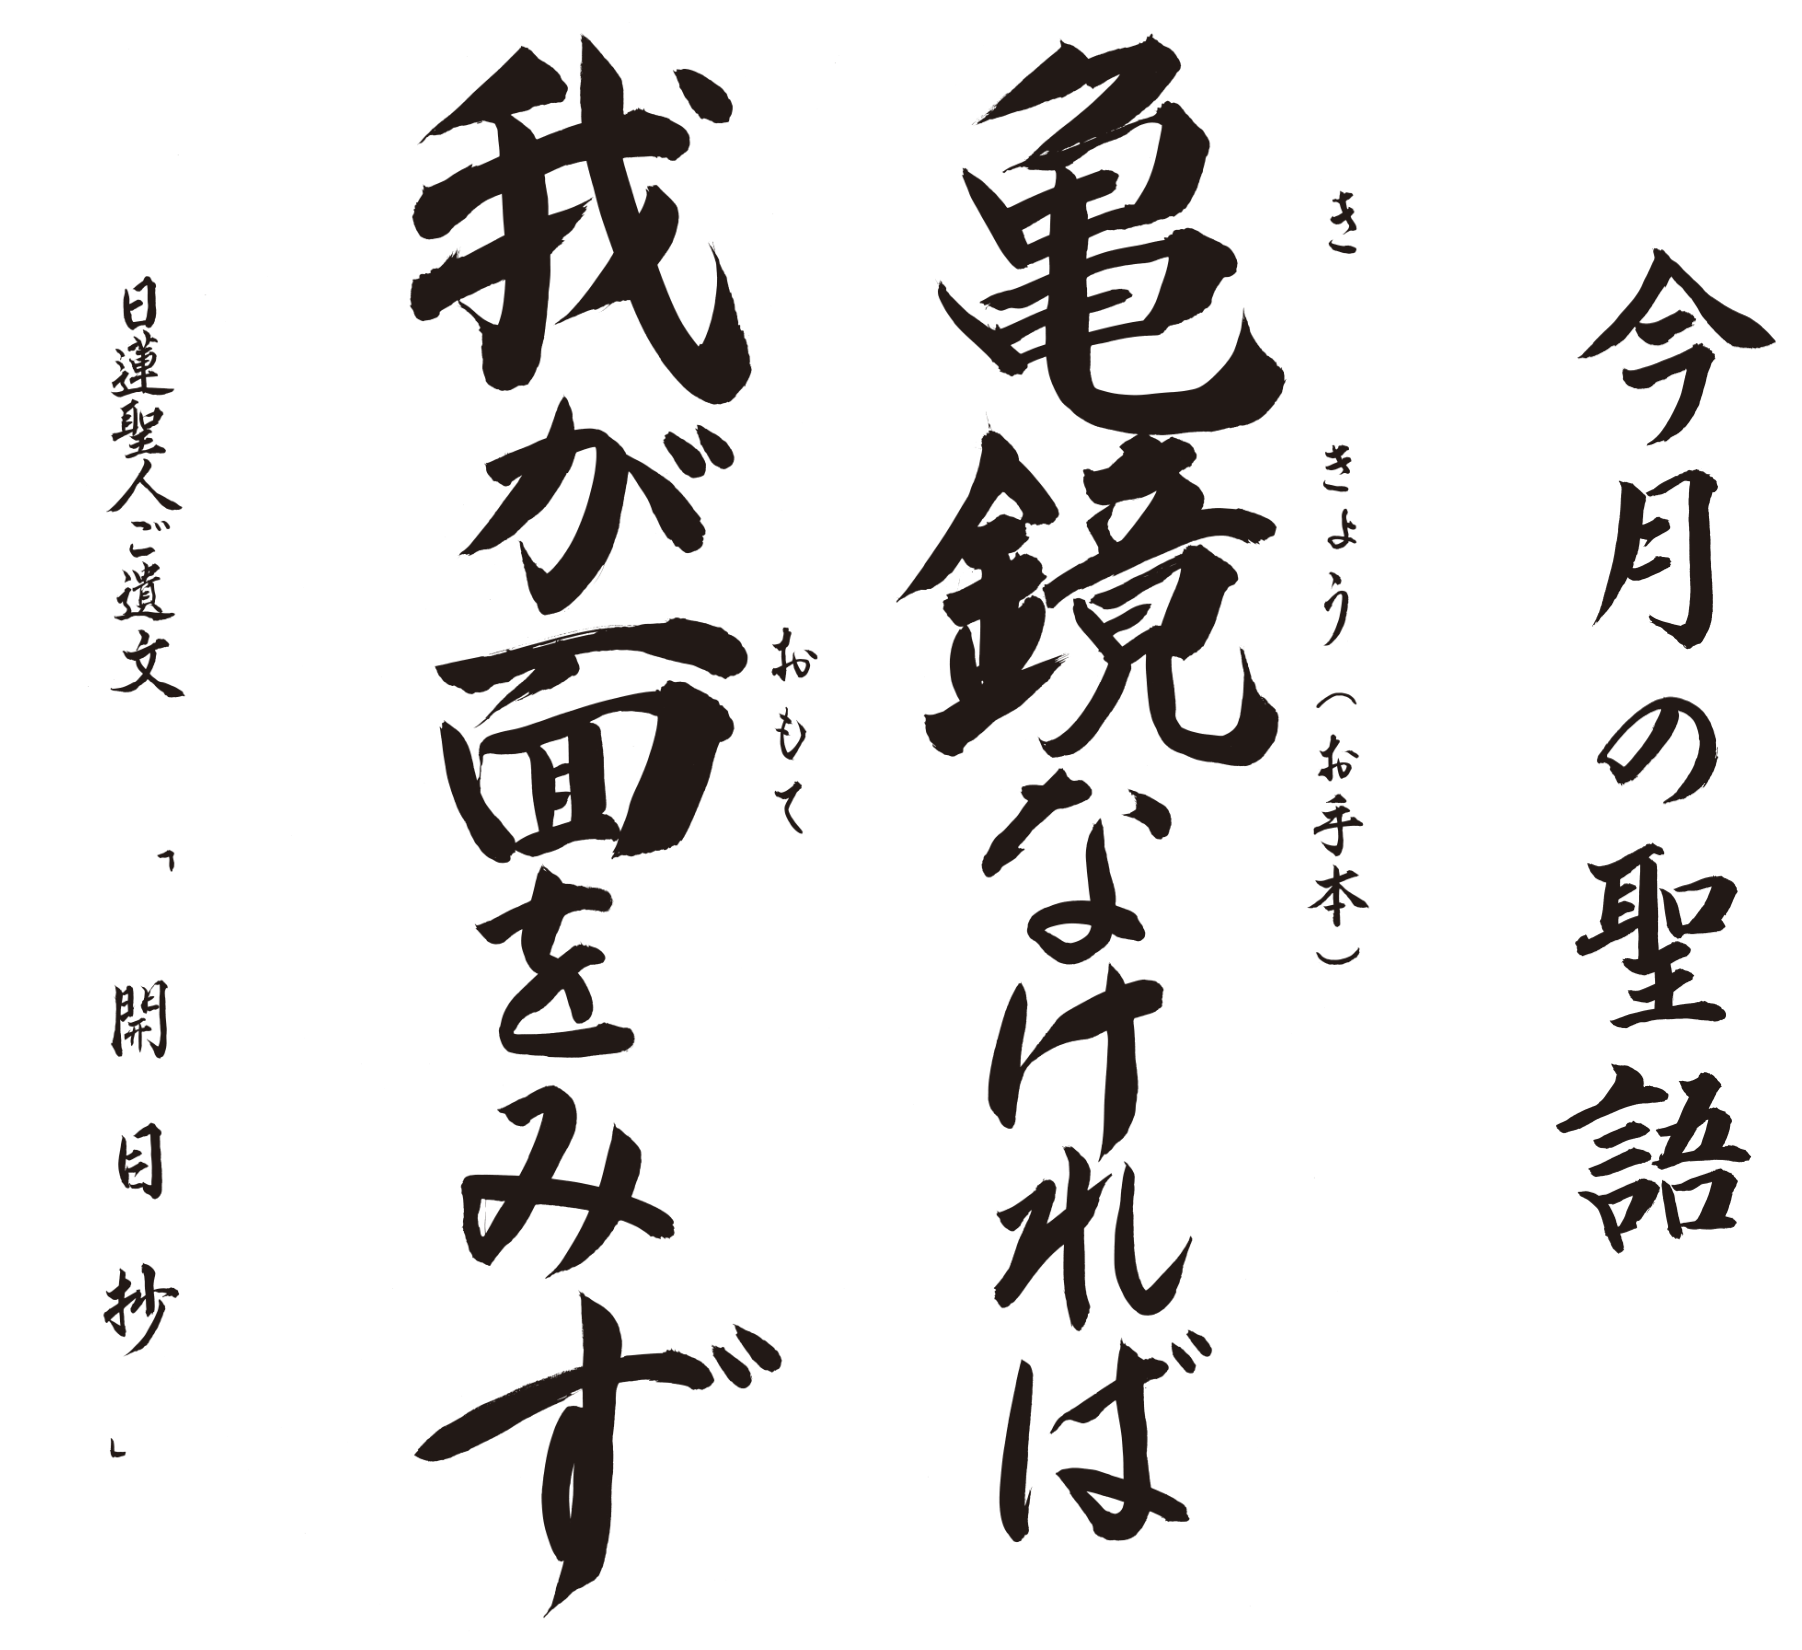 今月の聖語
き きょう(お手本)
亀鏡なければ
おもて
我が面をみず
日蓮聖人ご遺文 「開目抄」